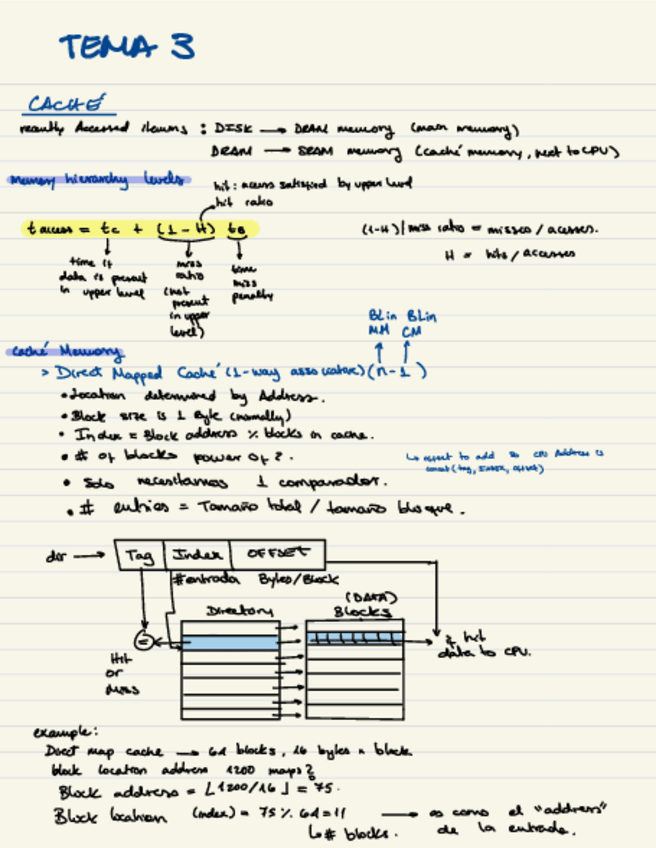 TEMA 3
CACHÉ
recently Accessed items : DISK → DRAM memory (main memory)
DRAM → SRAM memory (caché memory, next to CPU)
memory hierarchy levels
hit: access satisfied by upper level
hit ratio
t access = tc + (1 - H) tB
(1-H)/miss ratio = misses / acesses.
H = hits / accesses
time if data is present in upper level
miss ratio (not present in upper level)
time miss penalty
BLin MM
BLin CM
caché Memory
> Direct Mapped Caché (1-way associative) (n-1)
• Location determined by Address.
• Block size is 1 Byte (normally)
• Index = Block address % blocks in cache.
• # of blocks power of 2.
to add so CPU Address is
concat(tag, index, offset)
• Solo necesitamos 1 comparador.
• # entries = Tamaño total / tamaño bloque.
dir → Tag Index OFFSET
#entrada Bytes/Block
Directory
(DATA) Blocks
=
Hit or Miss
hit data to CPU.
example:
Direct map cache → 64 blocks, 16 bytes x block
block location address 1200 maps?
Block address = ⌊1200/16⌋ = 75.
Block location (index) = 75 % 64 = 11 → es como el "address" de la entrada.
↳ # blocks.